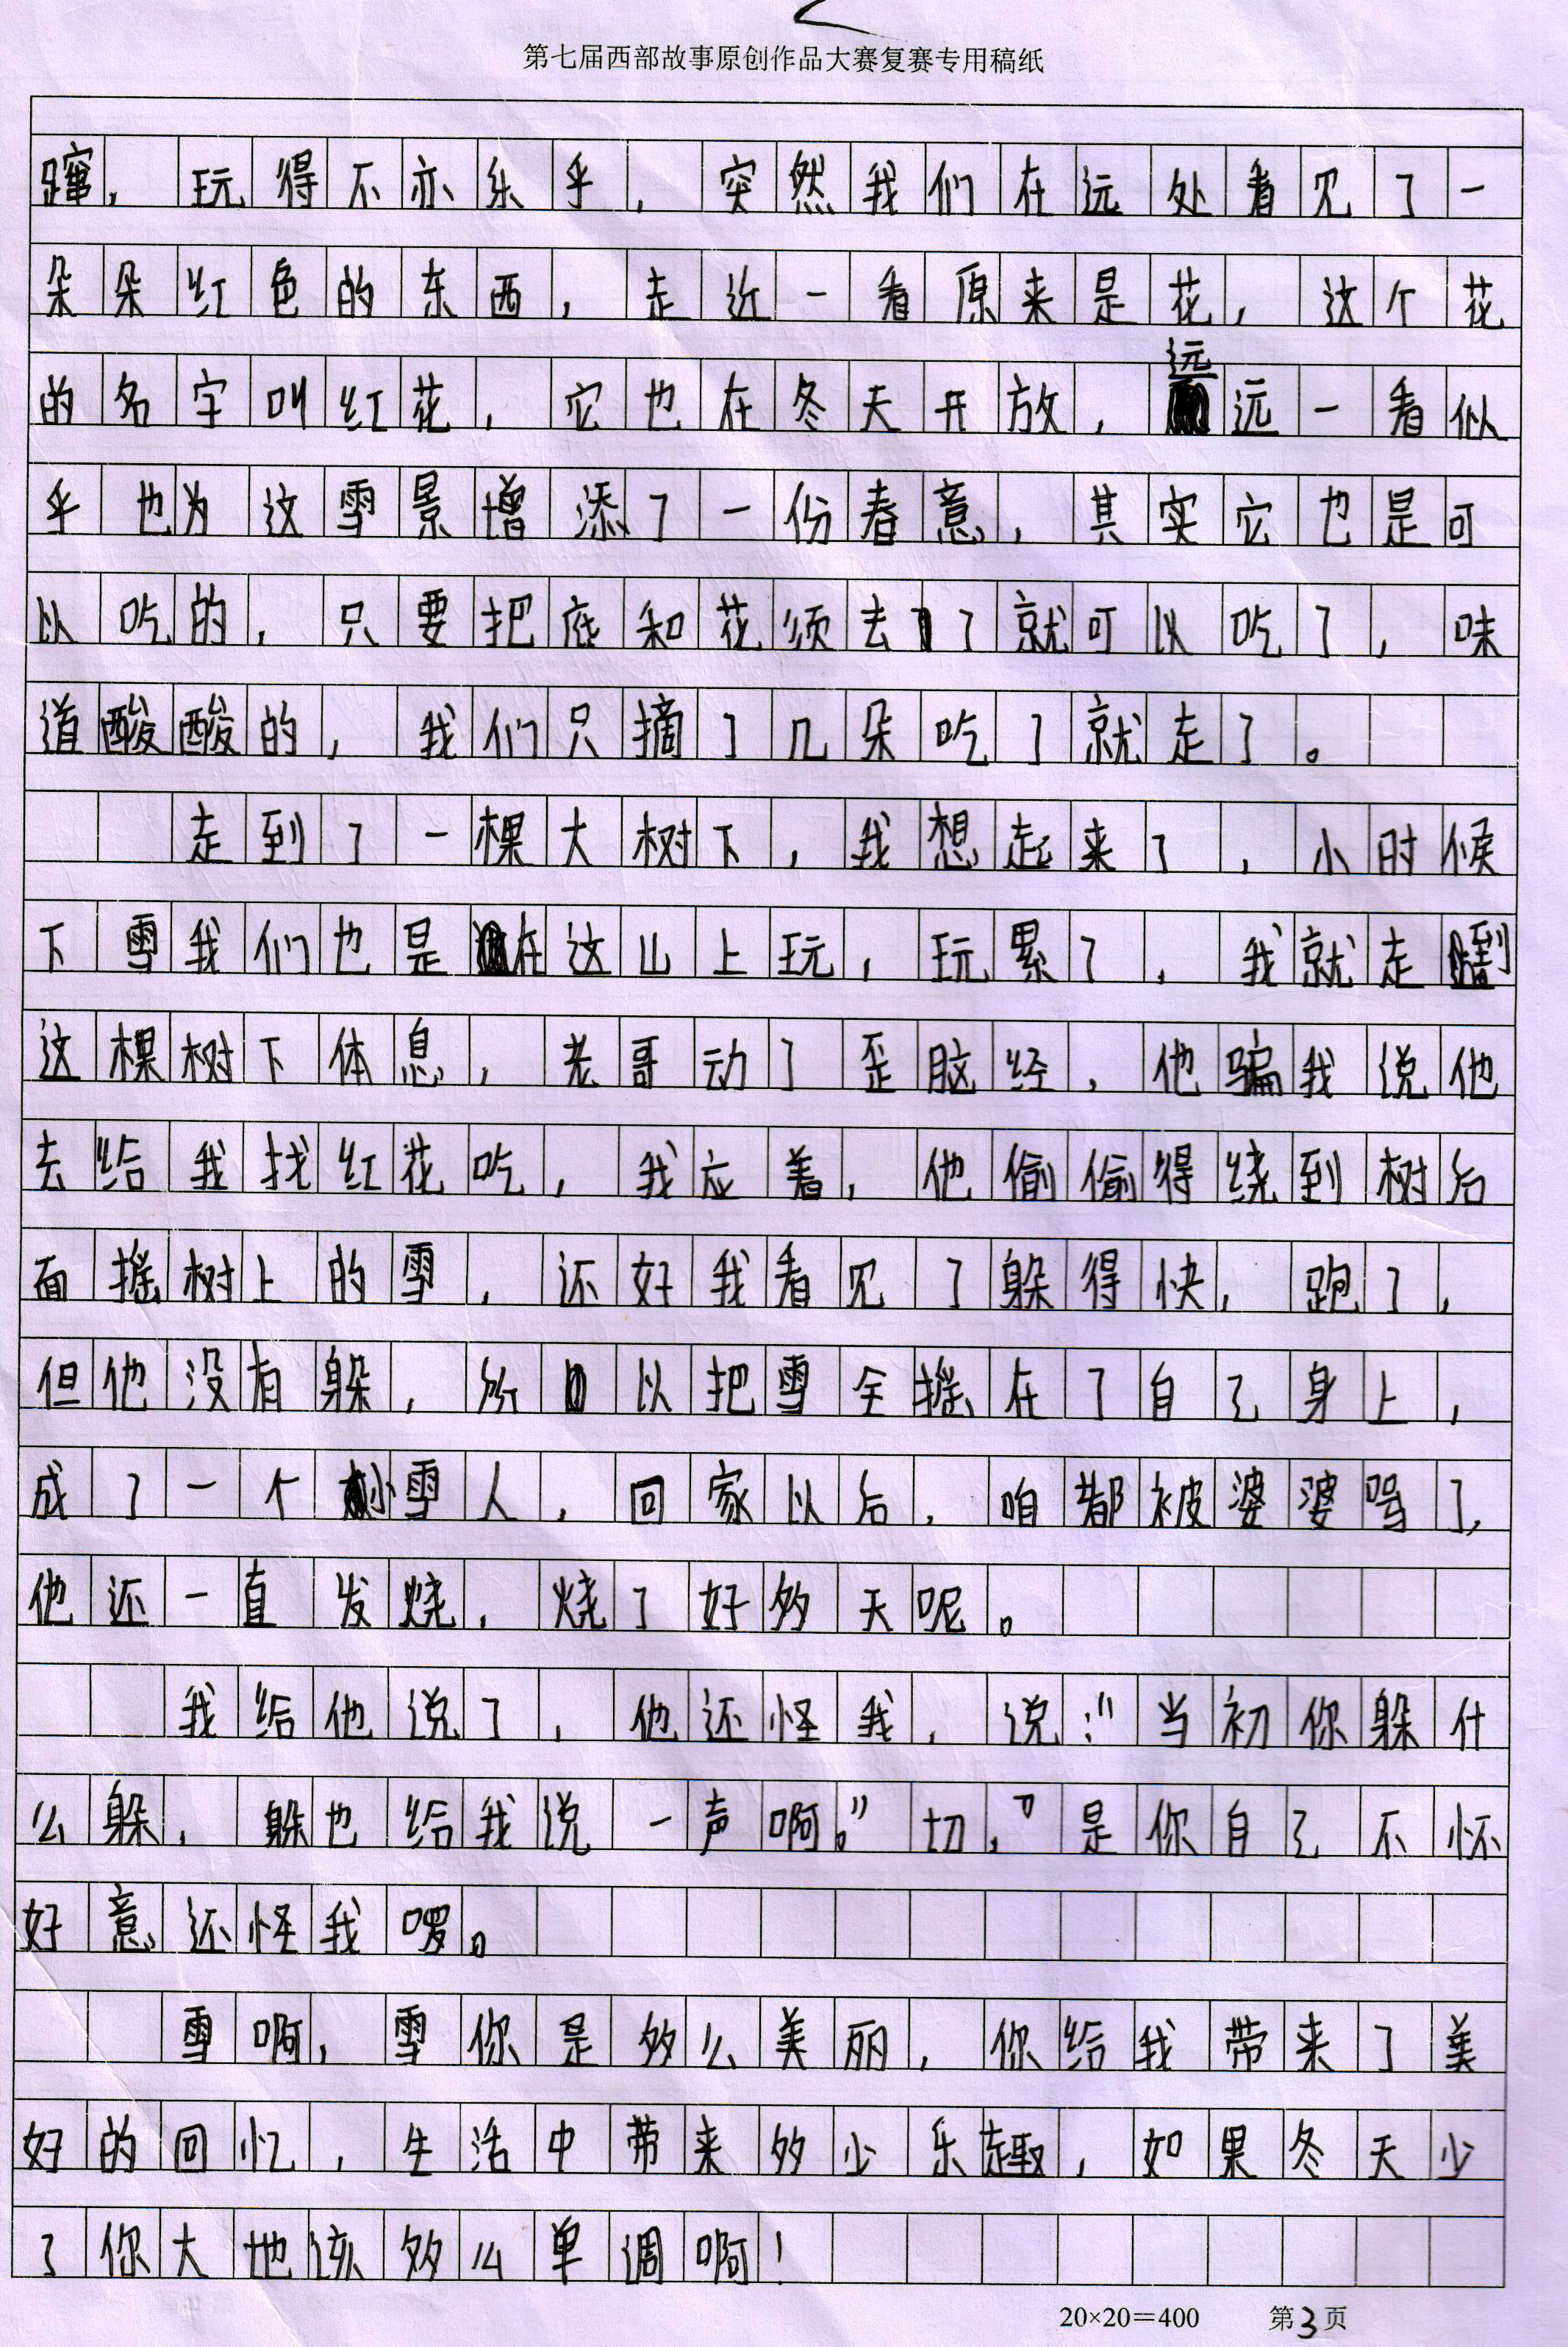 第七届西部故事原创作品大赛复赛专用稿纸
蹿，玩得不亦乐乎，突然我们在远处看见了一
朵朵红色的东西，走近一看原来是花，这个花
的名字叫红花，它也在冬天开放，远远一看似
乎也为这雪景增添了一份春意，其实它也是可
以吃的，只要把底和花须去了就可以吃了，味
道酸酸的，我们只摘了几朵吃了就走了。
走到了一棵大树下，我想起来了，小时候
下雪我们也是在这山上玩，玩累了，我就走到
这棵树下体息，老哥动了歪脑经，他骗我说他
去给我找红花吃，我应着，他偷偷得绕到树后
面摇树上的雪，还好我看见了躲得快，跑了，
但他没有躲，所以把雪全摇在了自己身上，
成了一个小雪人，回家以后，咱都被婆婆骂了，
他还一直发烧，烧了好多天呢。
我给他说了，他还怪我，说：“当初你躲什
么躲，躲也给我说一声啊。”切，”是你自己不怀
好意还怪我啰。
雪啊，雪你是多么美丽，你给我带来了美
好的回忆，生活中带来多少乐趣，如果冬天少
了你大地该多么单调啊！
20×20＝400 第3页